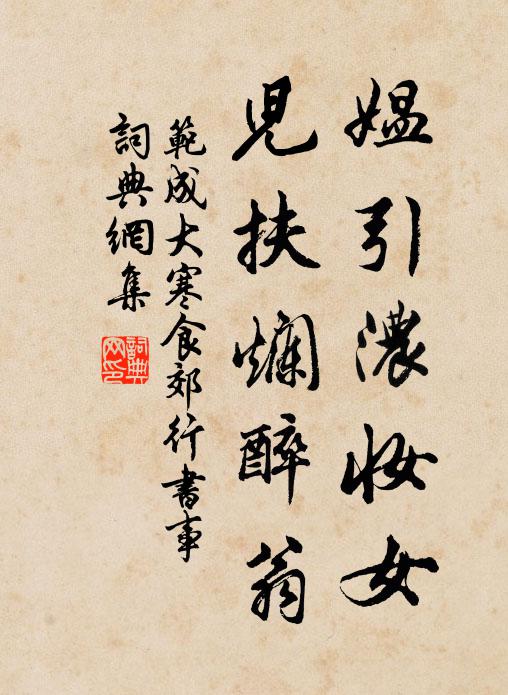 媪引濃妝女
兒扶爛醉翁
範成大寒食郊行書事
詞典網集
詞典網印